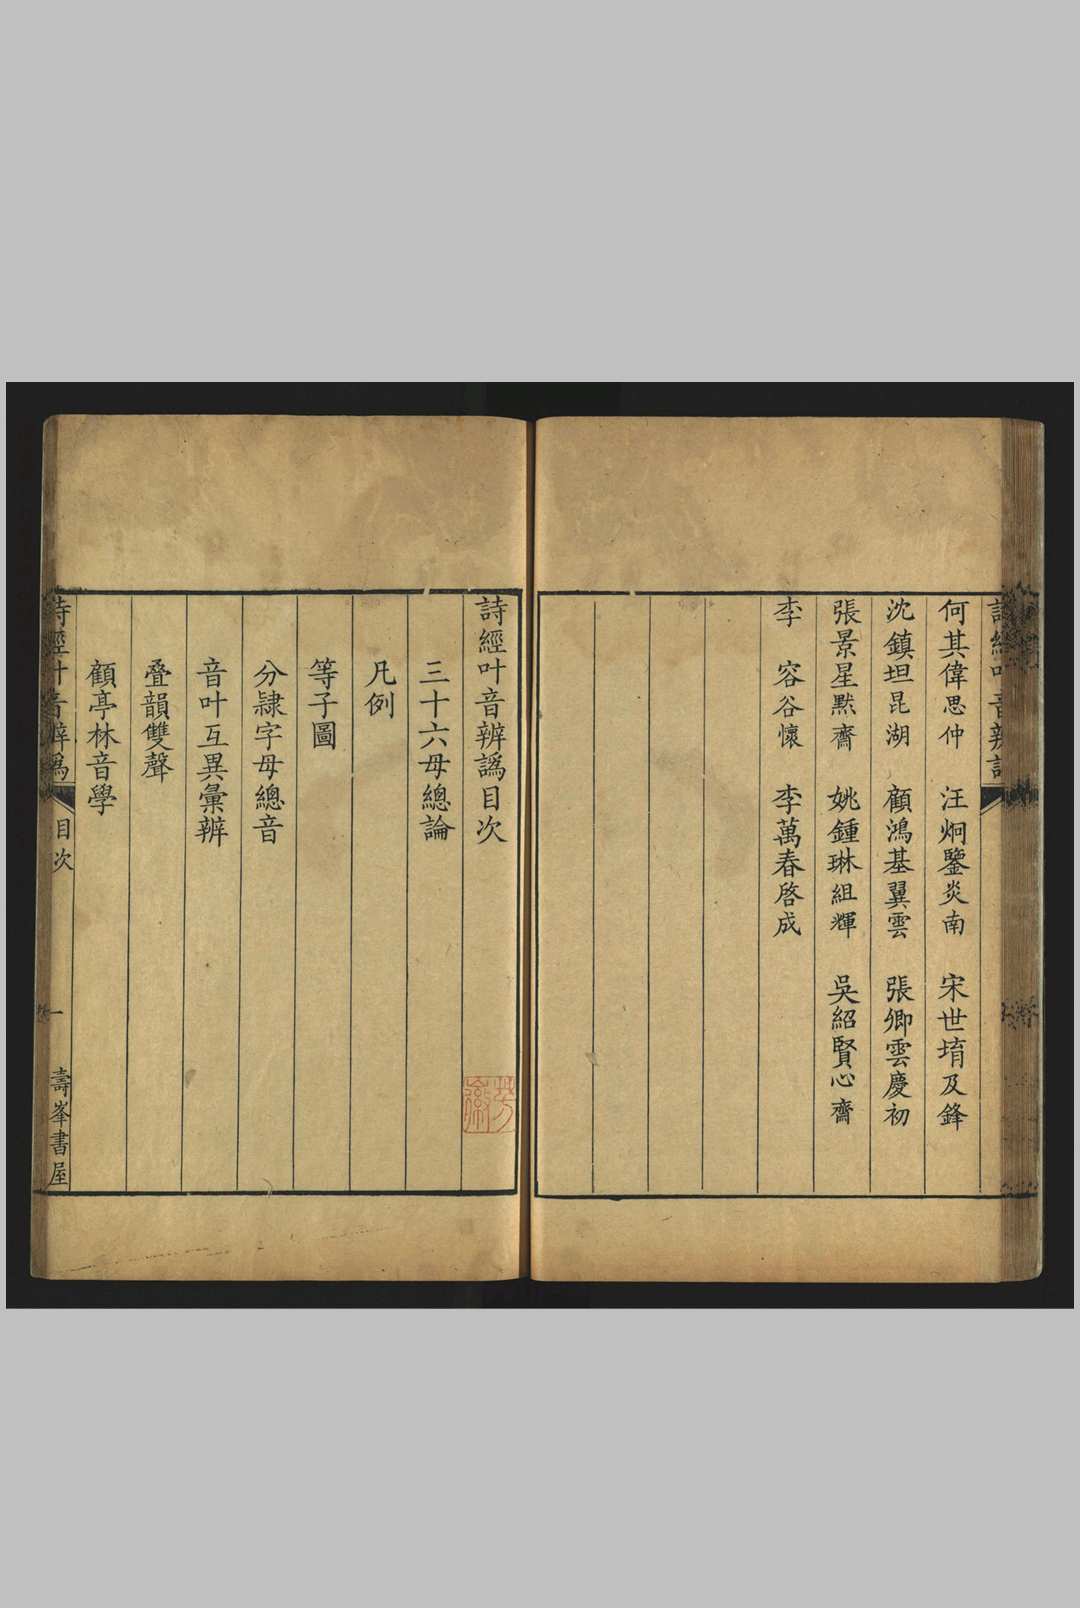 何其偉思仲　汪炯鑒炎南　宋世堉及鋒
沈鎮坦昆湖　顧鴻基翼雲　張卿雲慶初
張景星默齋　姚鍾琳組輝　吳紹賢心齋
李　容谷懷　李萬春啓成
詩經叶音辨譌目次
三十六母總論
凡例
等子圖
分隷字母總音
音叶互異彙辨
叠韻雙聲
顧亭林音學
詩經叶音辨譌　目次　一　壽峯書屋